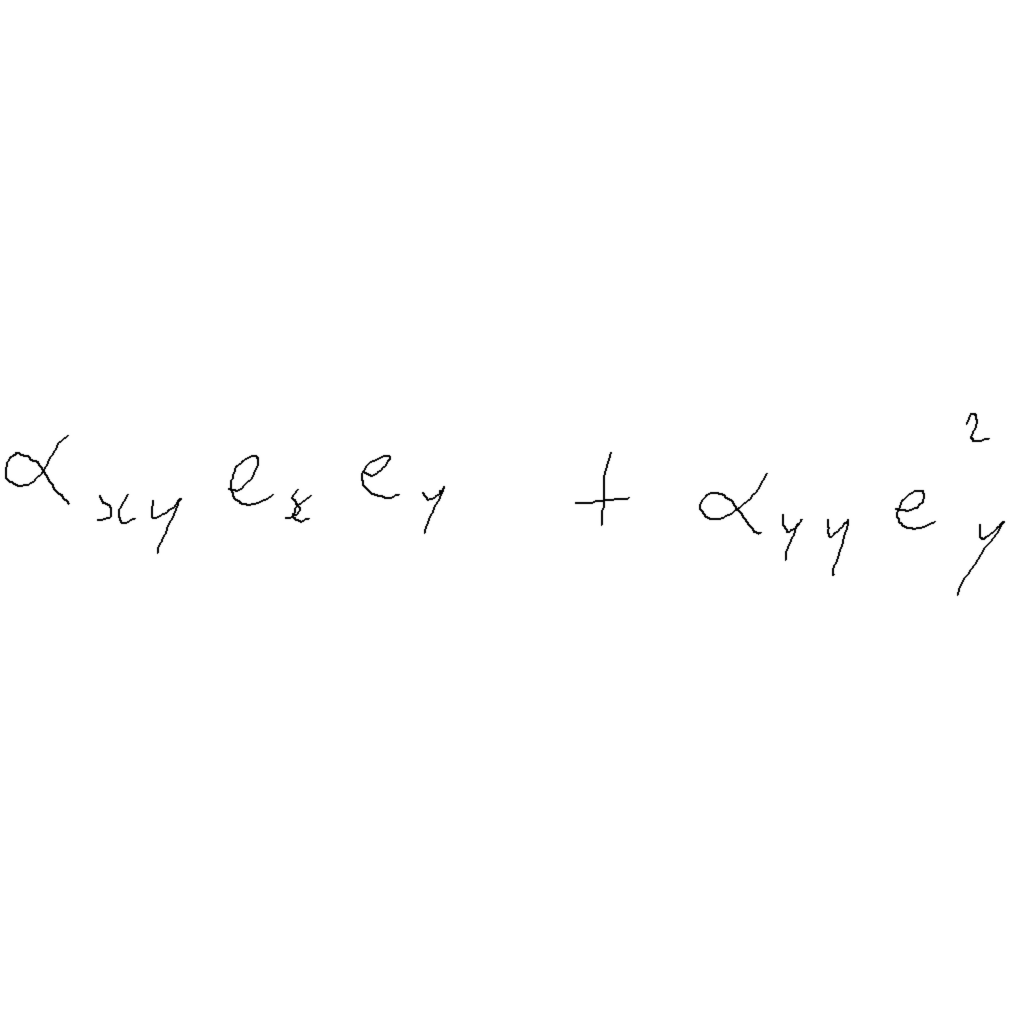 \alpha_{xy} e_x e_y + \alpha_{yy} e_y^2